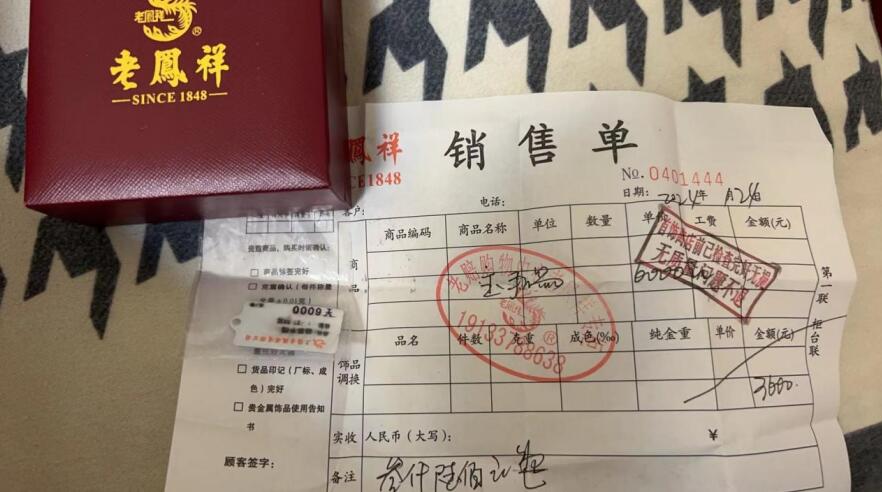 老鳳祥
老鳳祥
SINCE 1848
鳳祥
CE1848
销售单
No. 0401444
日期: 2024年
客户:
电话:
商品编码 商品名称 单位 数量 单价 工费 金额(元)
商品
首饰离店前已检查完好无损
无质量问题不退
19133788638
第一联 柜台联
贵重商品,购买时请确认:
商品标签完好
克重确认(每件称量
¥6000
货品印记(厂标、成色)完好
贵金属饰品使用告知书
饰品调换
品名 件数 克重 成色(‰) 纯金重 单价 金额(元)
实收 人民币(大写): ¥
备注 叁仟陆佰元
顾客签字: